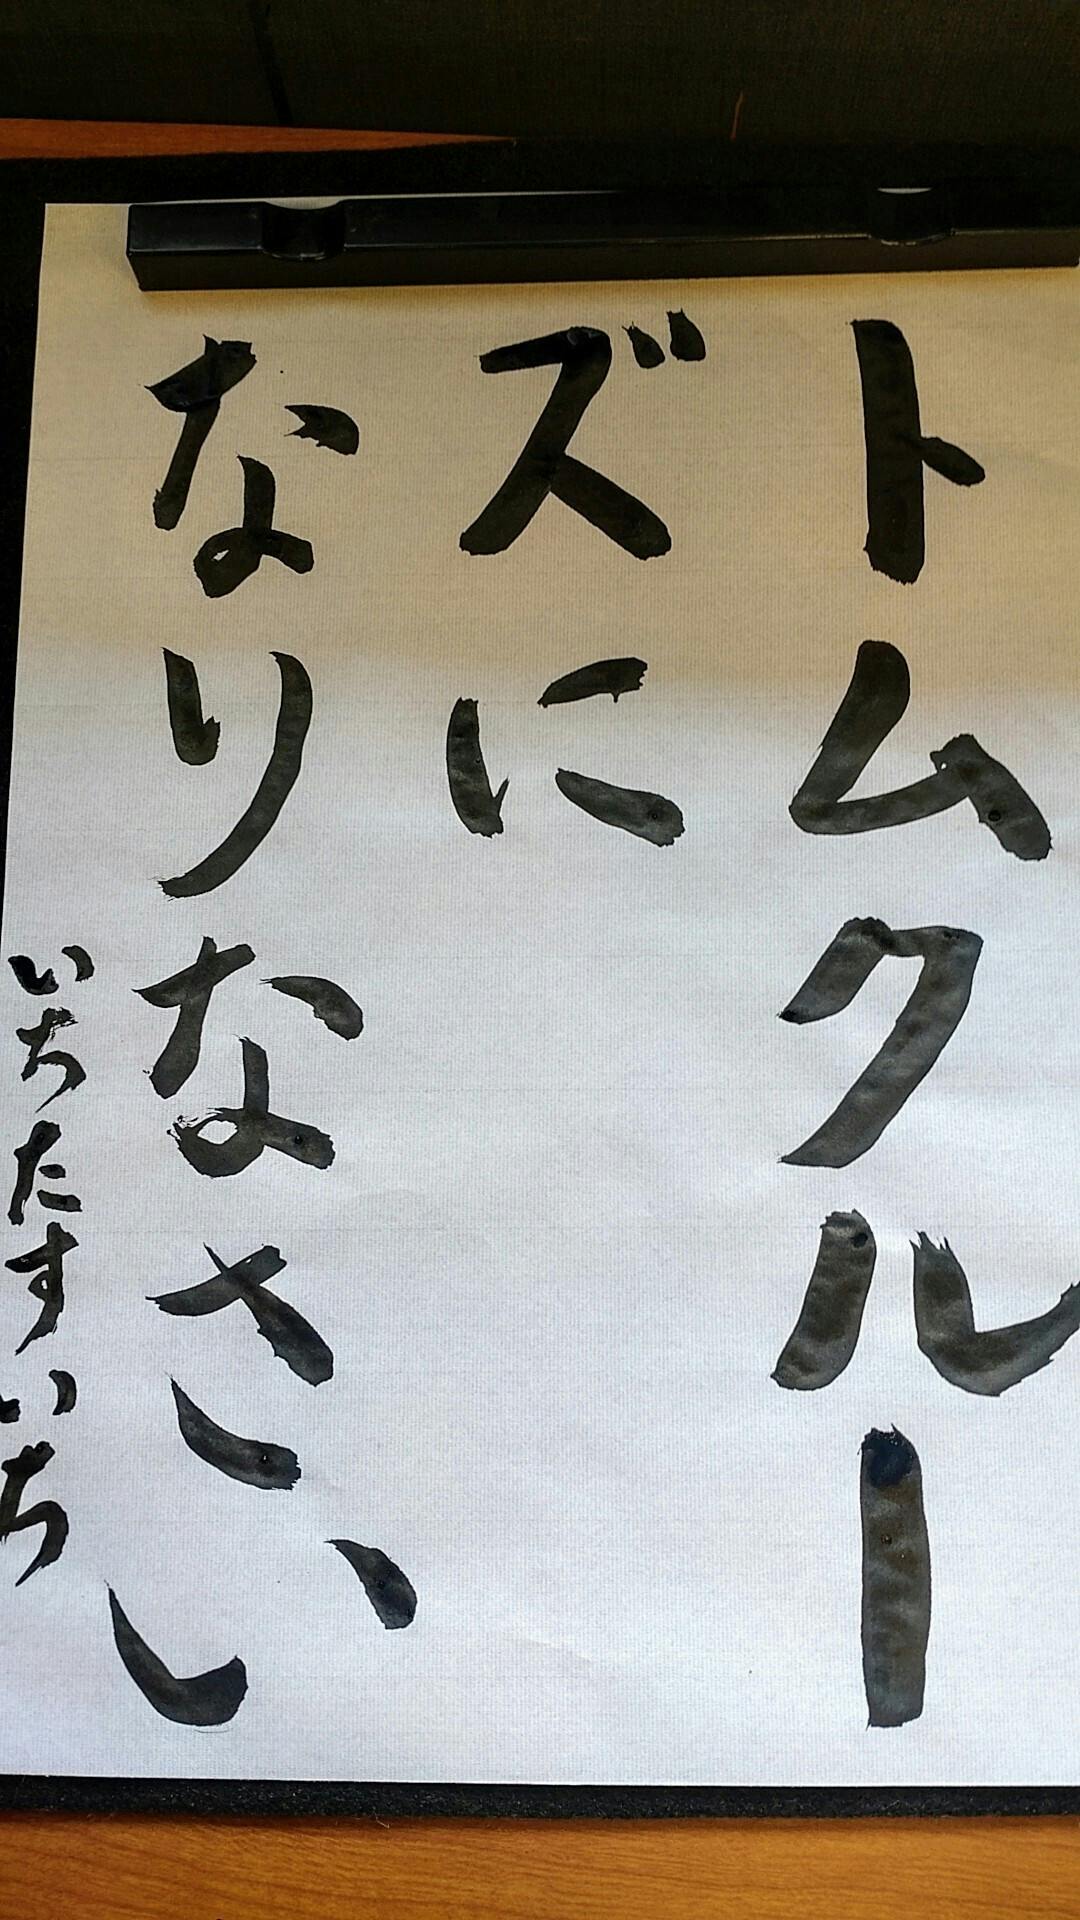 トムクルー
ズに
なりなさい
いちたすいち